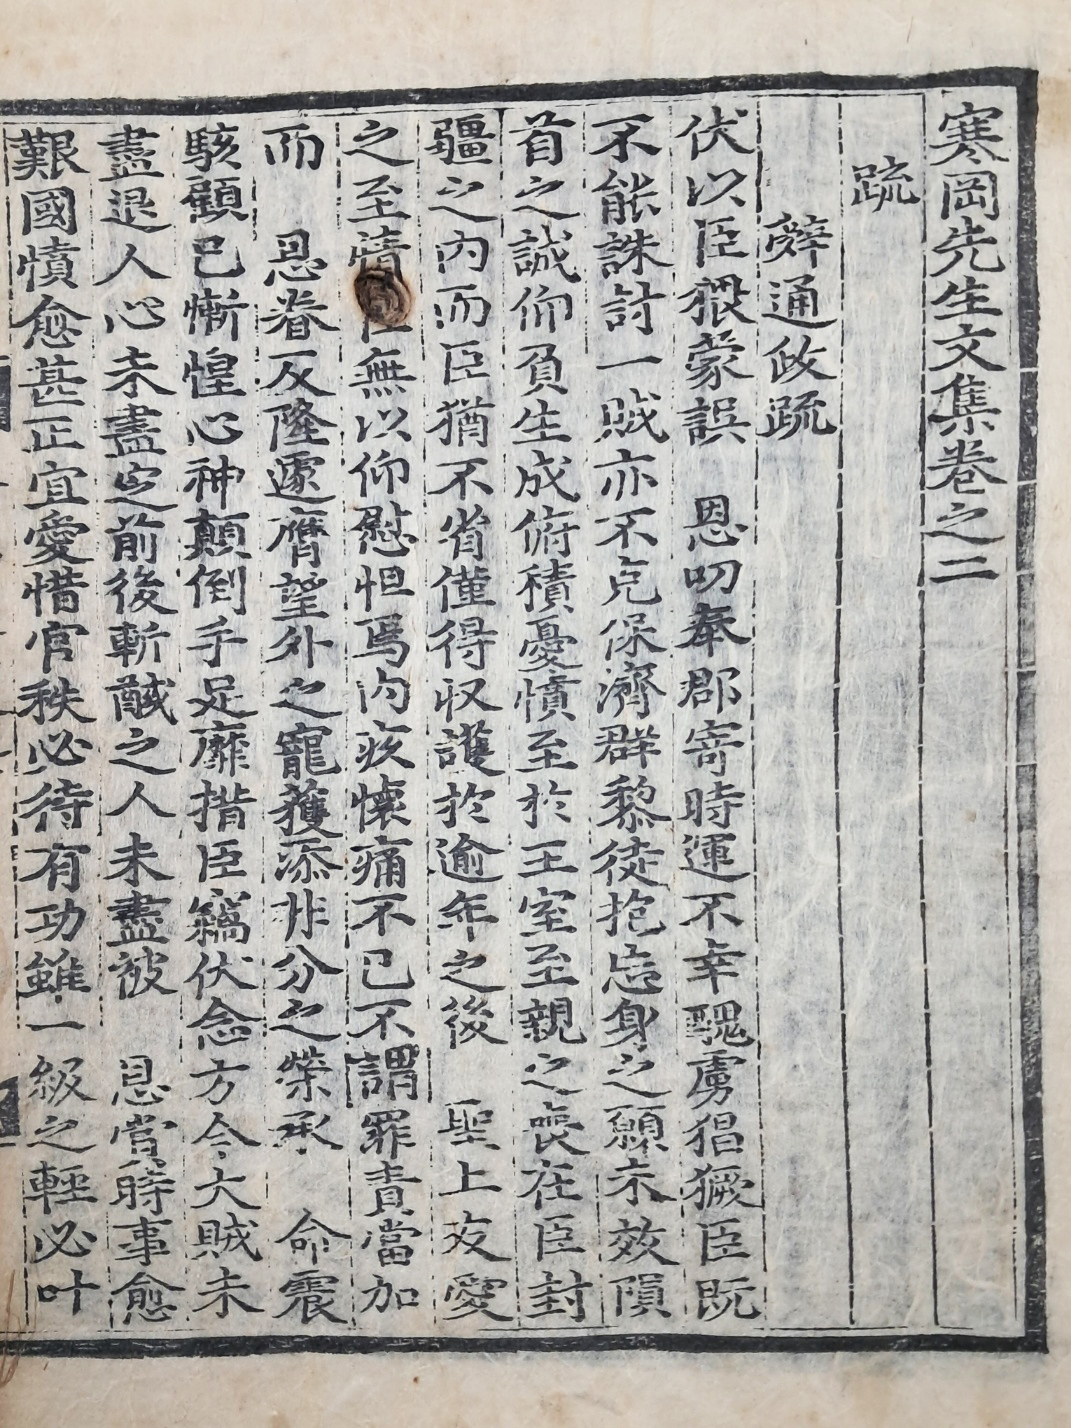 寒岡先生文集卷之二
疏
辭通政疏
伏以臣猥蒙誤 恩叨奉郡寄時運不幸醜虜猖獗臣既
不能誅討一賊亦不克保濟群黎徒抱忘身之願未效隕
首之誠仰負生成俯積憂憤至於王室至親之喪在臣封
疆之內而臣猶不省僅得収護於逾年之後 聖上友愛
之至情臣無以仰慰怛焉內疚懷痛不已不謂罪責當加
而 恩眷反隆遽膺望外之寵獲添非分之榮承 命震
駭顧已慚惶心神顛倒手足靡措臣竊伏念方今大賊未
盡退人心未盡定前後斬馘之人未盡被 恩賞時事愈
艱國憤愈甚正宜愛惜官秩必待有功雖一級之輕必叶